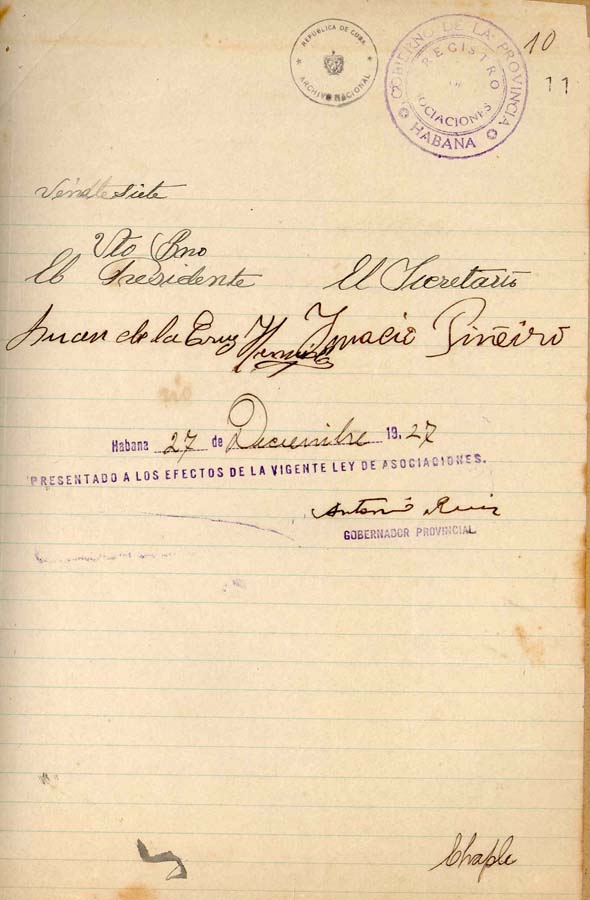 REPUBLICA DE CUBA
ARCHIVO NACIONAL
GOBIERNO DE LA PROVINCIA
REGISTRO
ASOCIACIONES
HABANA
10
11
Veinte siete
Vto Bno
El Presidente El Secretario
Juan de la Cruz Ignacio Piñeiro
Habana 27 de Diciembre 1927
PRESENTADO A LOS EFECTOS DE LA VIGENTE LEY DE ASOCIACIONES.
Antonio Ruiz
GOBERNADOR PROVINCIAL
Chaple